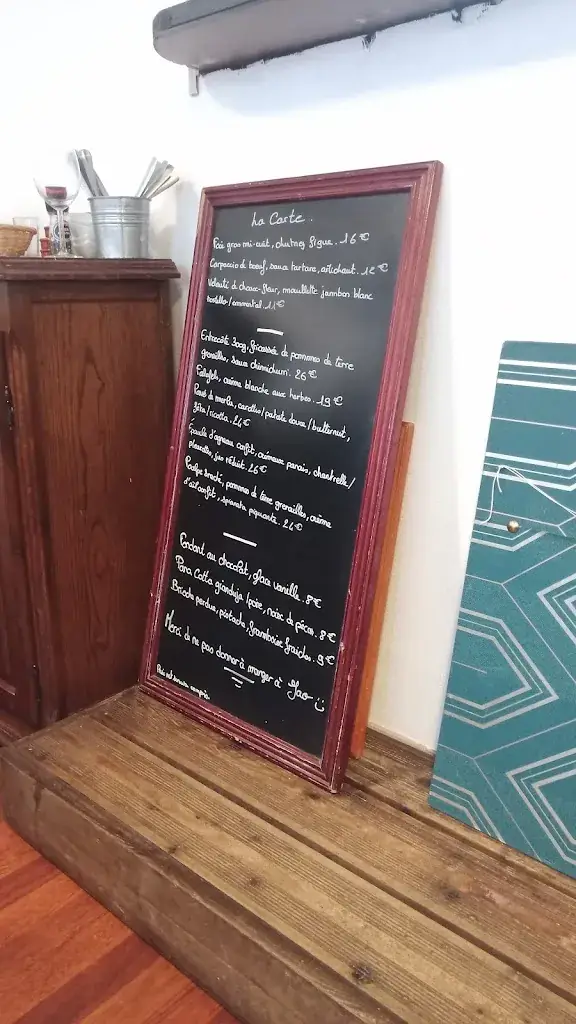 La Carte.
Foie gras mi-cuit, chutney figue. 16€
Carpaccio de boeuf, sauce tartare, artichaut. 12€
Velouté de choux-fleur, mouillette jambon blanc
/emmental. 11€
Entrecôte 300g, fricassée de pommes de terre
grenailles, sauce chimichurri. 26€
Falafels, crème blanche aux herbes. 19€
Pavé de merlu, carotte/patate douce/butternut,
féta/ricotta. 24€
Épaule d'agneau confit, crémeux panais, chantrelle/
pleurotte, jus réduit. 26€
Poulpe snacké, pommes de terre grenailles, crème
d'ail confit, spianata piquante. 24€
Fondant au chocolat, glace vanille. 8€
Pana Cotta gianduja/poire, noix de pécan. 8€
Brioche perdue, pistache, framboises fraîches. 9€
Merci de ne pas donner à manger à
Prix net service compris.